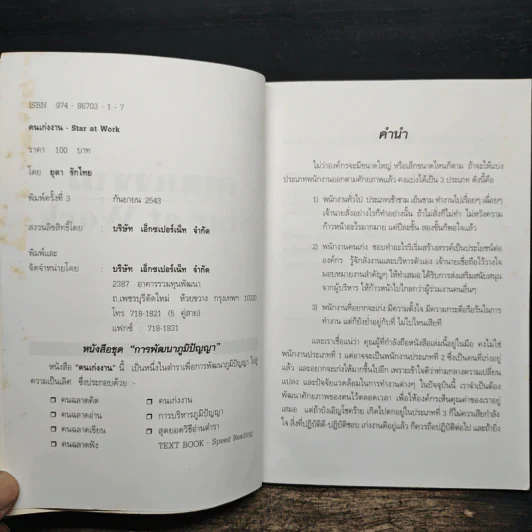 ISBN 974 - 86703 - 1 - 7
คนเก่งงาน - Star at Work
ราคา 100 บาท
โดย ยุดา รักไทย
พิมพ์ครั้งที่ 3 : กันยายน 2543
สงวนลิขสิทธิ์โดย : บริษัท เอ็กซเปอร์เน็ท จำกัด
พิมพ์และ
จัดจำหน่ายโดย : บริษัท เอ็กซเปอร์เน็ท จำกัด
2387 อาคารรวมทุนพัฒนา
ถ.เพชรบุรีตัดใหม่ ห้วยขวาง กรุงเทพฯ 10320
โทร. 718-1821 (5 คู่สาย)
แฟกซ์ : 718-1831
หนังสือชุด "การพัฒนาภูมิปัญญา"
หนังสือ "คนเก่งงาน" นี้ เป็นหนึ่งในตำราเพื่อการพัฒนาภูมิปัญญา ไปสู่
ความเป็นเลิศ ซึ่งประกอบด้วย :-
❒ คนฉลาดคิด ❒ คนเก่งงาน
❒ คนฉลาดอ่าน ❒ การบริหารภูมิปัญญา
❒ คนฉลาดเขียน ❒ สุดยอดวิธีอ่านตำรา
❒ คนฉลาดฟัง TEXT BOOK - Speed Reading
คำนำ
ไม่ว่าองค์กรจะมีขนาดใหญ่ หรือเล็กขนาดไหนก็ตาม ถ้าจะให้แบ่ง
ประเภทพนักงานออกตามศักยภาพแล้ว คงแบ่งได้เป็น 3 ประเภท ดังนี้คือ
1) พนักงานทั่วไป ประเภทเช้าชาม เย็นชาม ทำงานไปเรื่อยๆ เฉื่อยๆ
เจ้านายสั่งอย่างไรก็ทำอย่างนั้น ถ้าไม่สั่งก็ไม่ทำ ไม่หวังความ
ก้าวหน้าอะไรมากมาย แค่ปีละขั้น สองขั้นก็พอใจแล้ว
2) พนักงานคนเก่ง ชอบทำอะไรริเริ่มสร้างสรรค์เป็นประโยชน์ต่อ
องค์กร รู้จักสั่งงานและบริหารตัวเอง เจ้านายเชื่อถือไว้วางใจ
มอบหมายงานสำคัญๆ ให้ทำเสมอ ได้รับการส่งเสริมสนับสนุน
จากผู้บริหาร ให้ก้าวหน้าไปไกลกว่าผู้ร่วมงานคนอื่นๆ
3) พนักงานที่อยากจะเก่ง มีความตั้งใจ มีความกระตือรือร้นในการ
ทำงาน แต่ก็ยังย่ำอยู่กับที่ ไม่ไปไหนเสียที
และเราเชื่อแน่ว่า คุณผู้ที่กำลังถือหนังสือเล่มนี้อยู่ในมือ คงไม่ใช่
พนักงานประเภทที่ 1 แต่อาจจะเป็นพนักงานประเภทที่ 2 ซึ่งเป็นคนเก่งอยู่แล้ว
และอยากจะเก่งให้มากขึ้นไปอีก เพราะเข้าใจดีว่าท่ามกลางความเปลี่ยน
แปลง และปัจจัยแวดล้อมในการทำงานต่างๆ ในปัจจุบันนี้ เราจำเป็นต้อง
พัฒนาศักยภาพของตนไว้ตลอดเวลา เพื่อให้องค์กรเห็นคุณค่าของเราอยู่
เสมอ แต่ถ้าบังเอิญโชคร้าย เกิดไปตกอยู่ในประเภทที่ 3 ก็ไม่ควรเสียกำลัง
ใจ สิ่งที่ปฏิบัติดี-ปฏิบัติชอบ เก่งงานดีอยู่แล้ว ก็ควรถือปฏิบัติต่อไป และถ้ายิ่ง